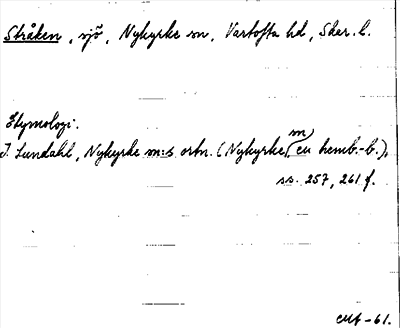 Stråken, sjö, Nykyrke sn, Vartofta hd, Skar. l.
Etymologi.
I. Lundahl, Nykyrke sn:s ortn. (Nykyrke, en hemb.-b.),
ss. 257, 261 f.
-61.